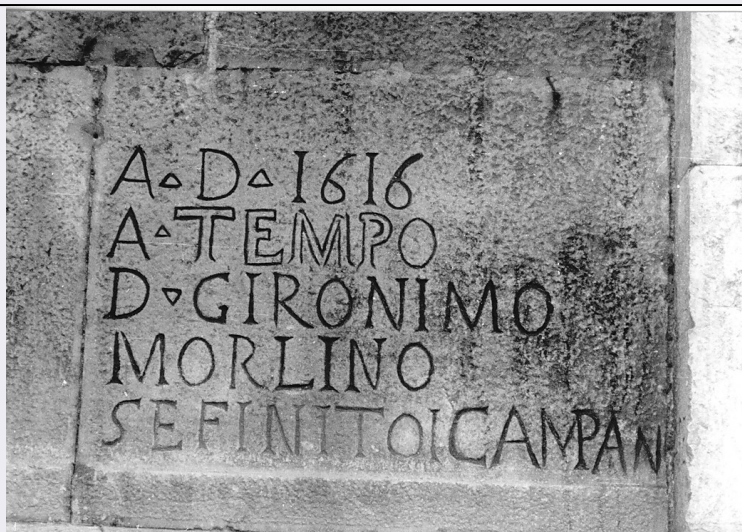 A▵D▵1616
A▵TEMPO
D▿GIRONIMO
MORLINO
SEFINITOICAMPAN